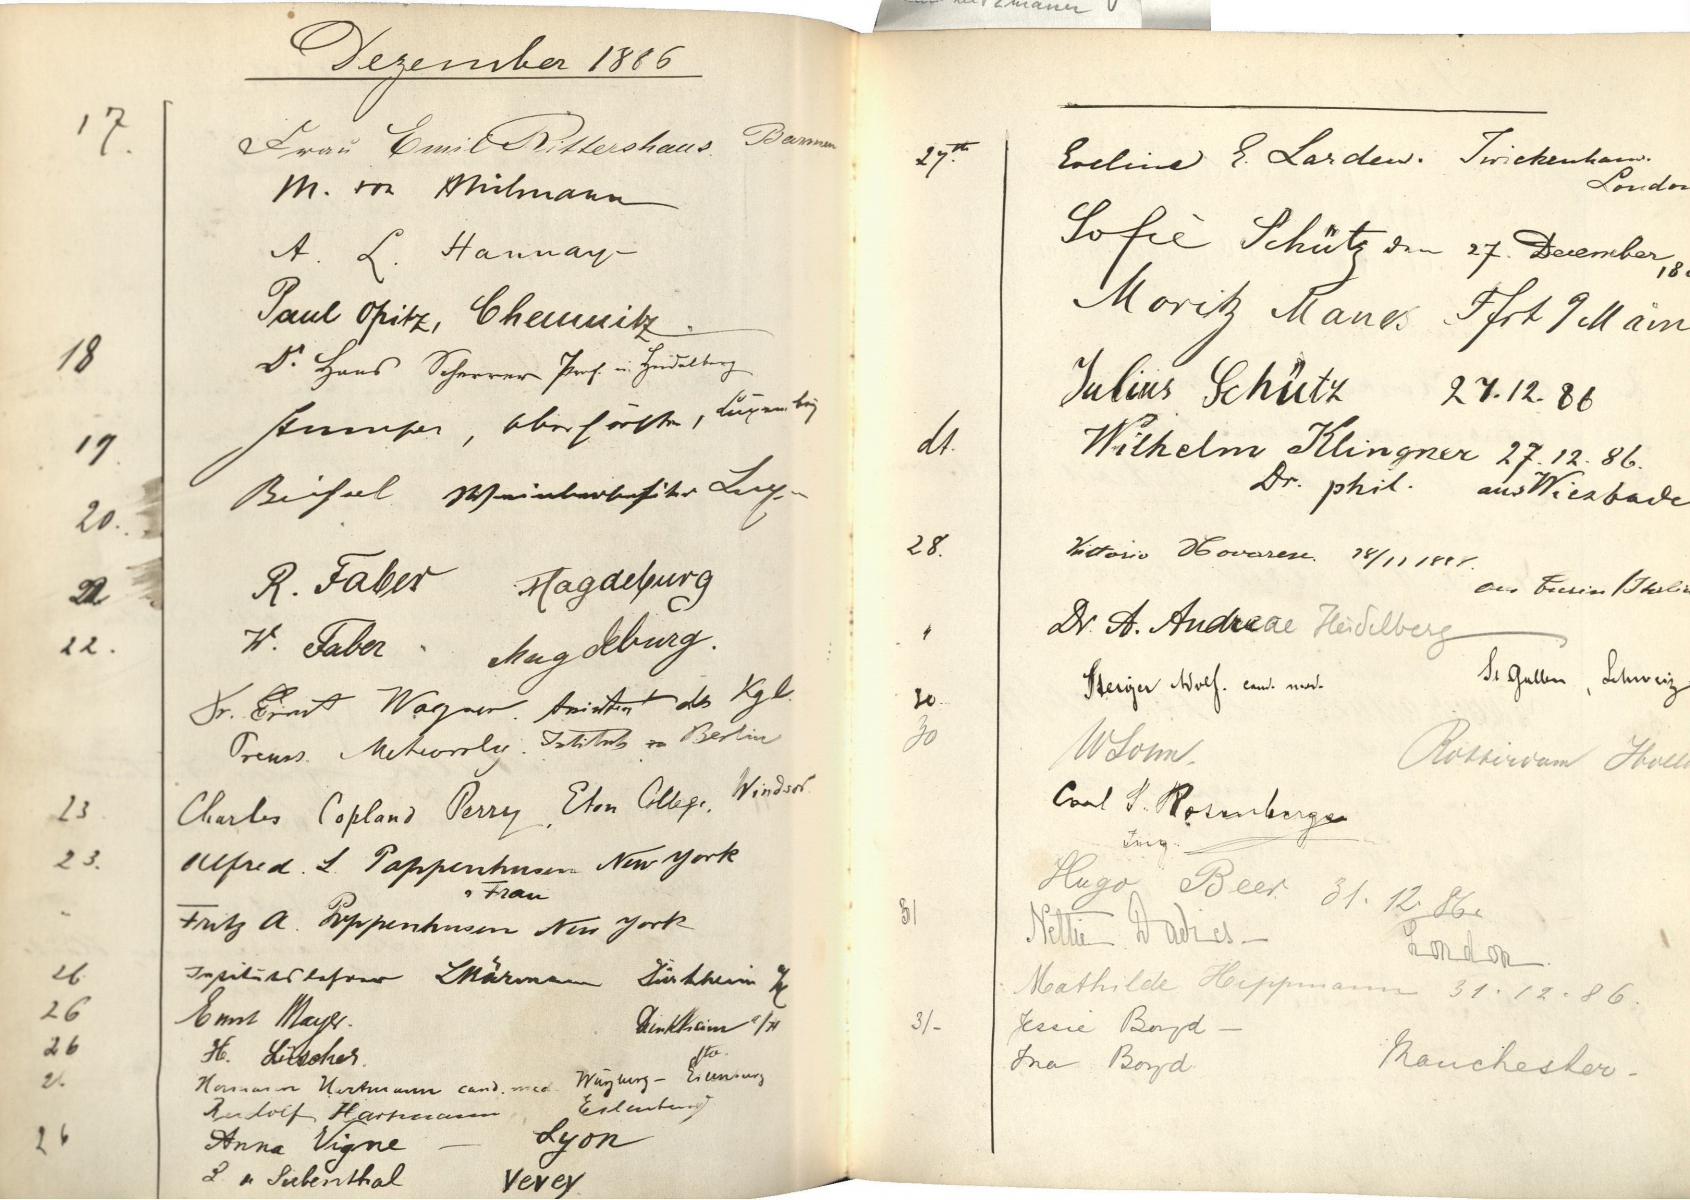 Dezember 1886
17. Frau Emil Rittershaus. Barmen
M. von
A. L. Hannay
Paul Opitz, Chemnitz.
18 Dr. Hans Scherrer Prof. in Heidelberg
19 Oberförster, Luxemburg
20. Weinbaubesitzer
R. Faber Magdeburg
22. W. Faber. Magdeburg.
Dr. Ernst Wagner. Assistent des Kgl.
Preuss. Meteorolog. Instituts zu Berlin
23 Charles Copland Perry, Eton College, Windsor
23. Alfred. L. Pappenhusen New York
" Frau
Fritz A. Pappenhusen New York
26
26 Ernst Mayer. Dürkheim a/H
26 H. Lüscher. dto.
Hermann Hartmann cand. med. Würzburg - Eilenburg
Rudolf Hartmann, Eilenburg
26 Anna Vigne — Lyon
L v Siebenthal Vevey
27th. Eveline E. Larden. Twickenham.
London
Sofie Schütz den 27. December
188
Moritz Manes Ffrt a/Main
Julius Schütz 27.12.86
dt. Wilhelm Klingner 27.12.86.
Dr. phil. aus Wiesbade
28. Vittorio Novarese.
aus Turin
" Dr. A. Andreae Heidelberg
30. Steiger Adolf. cand. med. St Gallen, Schweiz
30 Rotterdam Holl
Carl S. Rosenberg
Ing.
Hugo Beer 31.12.86.
31 Nettie Davies — London.
Mathilde Heppmann 31.12.86.
31- Jessie Boyd —
Ina Boyd Manchester.